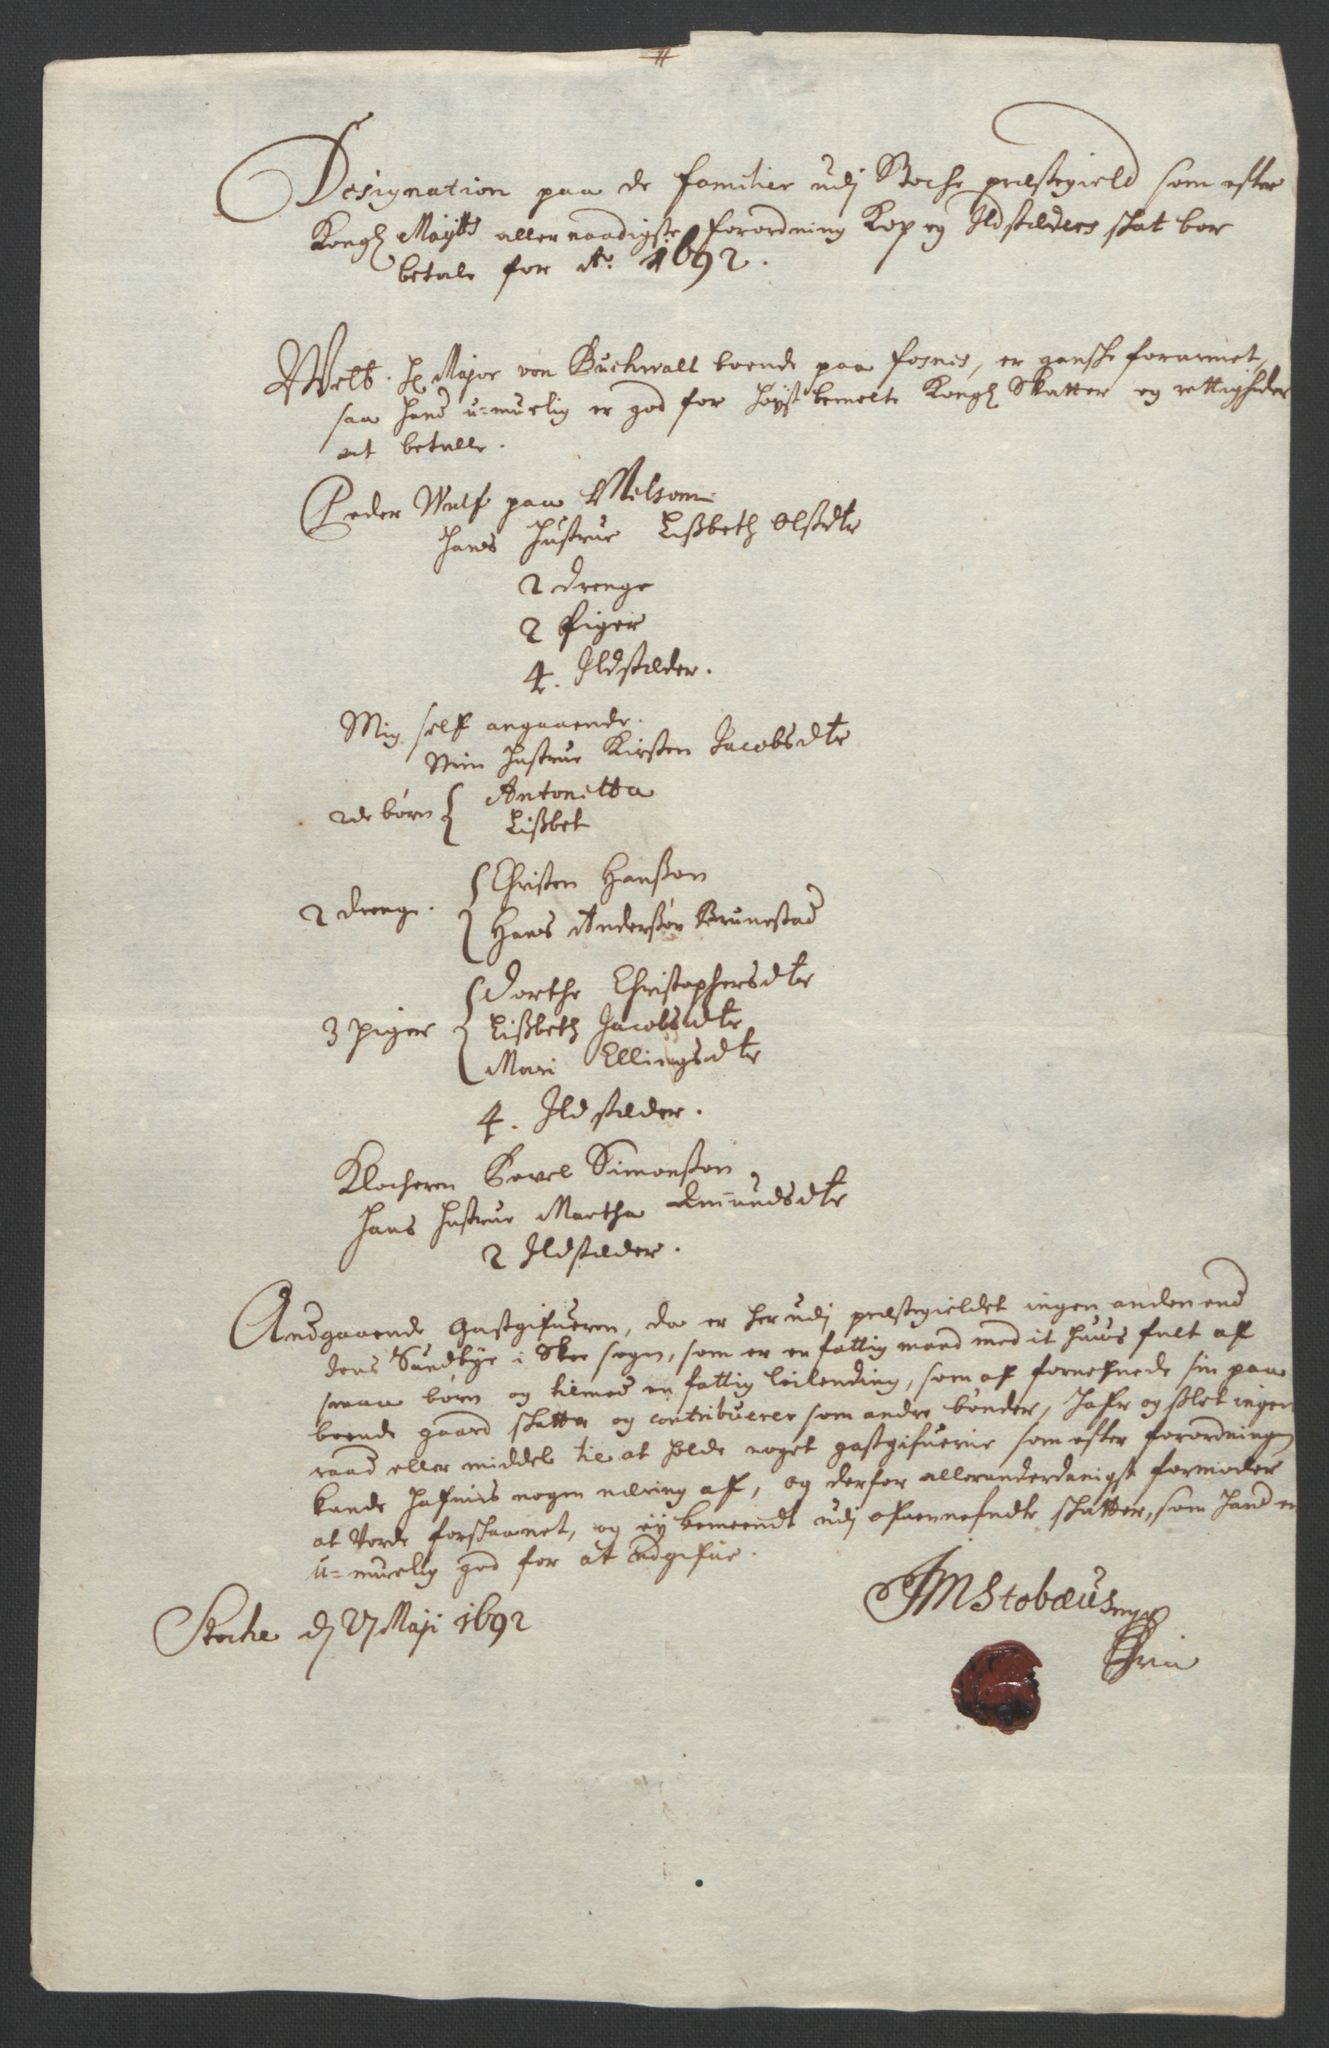 Designation paa de familier udj Stoche præstegield som efter
Kongl Maytts allernaadigste forordning Kop og Ildstæders skat bør
betale for Ao. 1692.
Welb. Hl Major von Buchwalt boende paa fosnes, er gansche forarmet,
saa hand u-muelig er god for høystbemelte Kongl Skatter og rettigheder
at betalle.
Peder Wulf paa Melsom
hans hustrue Lißbeth Olsdtr
2 drenge
2 piger
4. Ildstæder.
Mig self angaaende.
Min hustrue Kirsten Jacobsdtr
2de børn { Antonetta
Lißbet
2 drenge. { Christen Hanßøn
Hans Anderßøn Brunestad
3 piger { Dorthe Christophersdtr
Lißbeth Jacobsdtr
Mari Ellingsdtr
4. Ildstæder.
Klocheren Povel Simonßøn
hans hustrue Martha Amundsdtr
2 Ildstæder.
Andgaaende gastgifueren, da er her udj præstegieldet ingen anden end
Jens Sundbye i Skee sogn, som er en fattig mand med it huus fult af
smaa børn og tilmed en fattig leilending, som af fornefnede sin paa
boende gaard skatter og contribuerer som andre bønder, hafr og slet ingen
raad eller middel til at holde noget gastgifuerie som efter forordningen
kunde hafues nogen næring af, og derfor allerunderdanigst formoder
at Vorde forschaanet, og ey bemeendt udj ofvennefndte skatter, som hand er
u-muelig god for at udgifue.
Stoche d 27 Maji 1692
JMStobæus